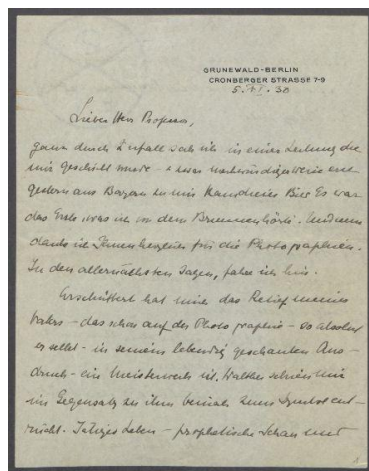 GRUNEWALD-BERLIN
CRONBERGER STRASSE 7-9
5. VI. 30
Lieber Herr Professor,
ganz durch Zufall sah ich in einer Zeitung die
mir geschickt wurde -
gestern aus Bozen zu mir Ihr Bild. Es war
das Erste, was ich von dem Brunnen Und nun
danke ich Ihnen herzlich für die Photographien.
In den allernächsten Tagen, fahre ich hin.
Erschüttert hat mich das Relief meines
Vaters - das schon auf der Photographie - so absolut
er selbst - in seinem lebendig geschauten Aus-
druck - ein Meisterwerk ist. Walther schien mir
im Gegensatz zu ihm beinah zum Symbol ent-
rückt. Leben - prophetische Schau und